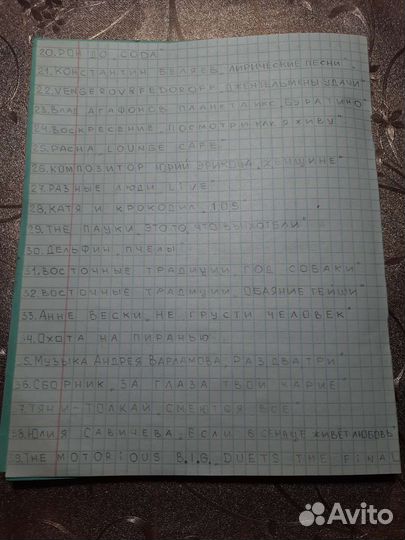 20.РОНДО „СОДА"
21.КОНСТАНТИН БЕЛЯЕВ „ЛИРИЧЕСКИЕ ПЕСНИ"
22.VENGEROV&FEDOROFF „ДЖЕНТЕЛЬМЕНЫ УДАЧИ"
23.ВЛАД АГАФОНОВ „ПЛАНЕТА ИКС БУРАТИНО"
24.ВОСКРЕСЕНИЕ „ПОСМОТРИ КАК Я ЖИВУ"
25.PACHA „LOUNGE CAFE"
26.КОМПОЗИТОР ЮРИЙ „ЖЕНЩИНЕ"
27.РАЗНЫЕ ЛЮДИ „LIVE"
28.КАТЯ И КРОКОДИЛ „105"
29.THE ПАУКИ „ЭТО ТО, ЧТО ВЫ ХОТЕЛИ"
30.ДЕЛЬФИН „ПЧЁЛЫ"
31.ВОСТОЧНЫЕ ТРАДИЦИИ „ГОД СОБАКИ"
32.ВОСТОЧНЫЕ ТРАДИЦИИ „ОБАЯНИЕ ГЕЙШИ"
33.АННЕ ВЕСКИ „НЕ ГРУСТИ ЧЕЛОВЕК"
34.ОХОТА НА ПИРАНЬЮ
35.МУЗЫКА АНДРЕЯ ВАРЛАМОВА „РАЗ ДВА ТРИ"
36.СБОРНИК „ЗА ГЛАЗА ТВОИ КАРИЕ"
37.ТЯНИ-ТОЛКАЙ „СМЕЮТСЯ ВСЕ"
38.ЮЛИЯ САВИЧЕВА „ЕСЛИ В СЕРДЦЕ ЖИВЁТ ЛЮБОВЬ"
39.THE NOTORIOUS B.I.G. „DUETS THE FINAL
Avito